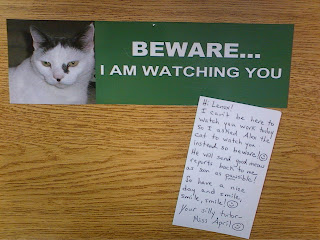 BEWARE...
I AM WATCHING YOU
Hi Lenox!
I can't be here to
watch you work today
so I asked Alex the
cat to watch you
instead so beware! ☺
He will send good meow
reports back to me
as soon as pawsible!
So have a nice
day and smile,
smile, smile! ☺
Your silly tutor-
Miss April ☺